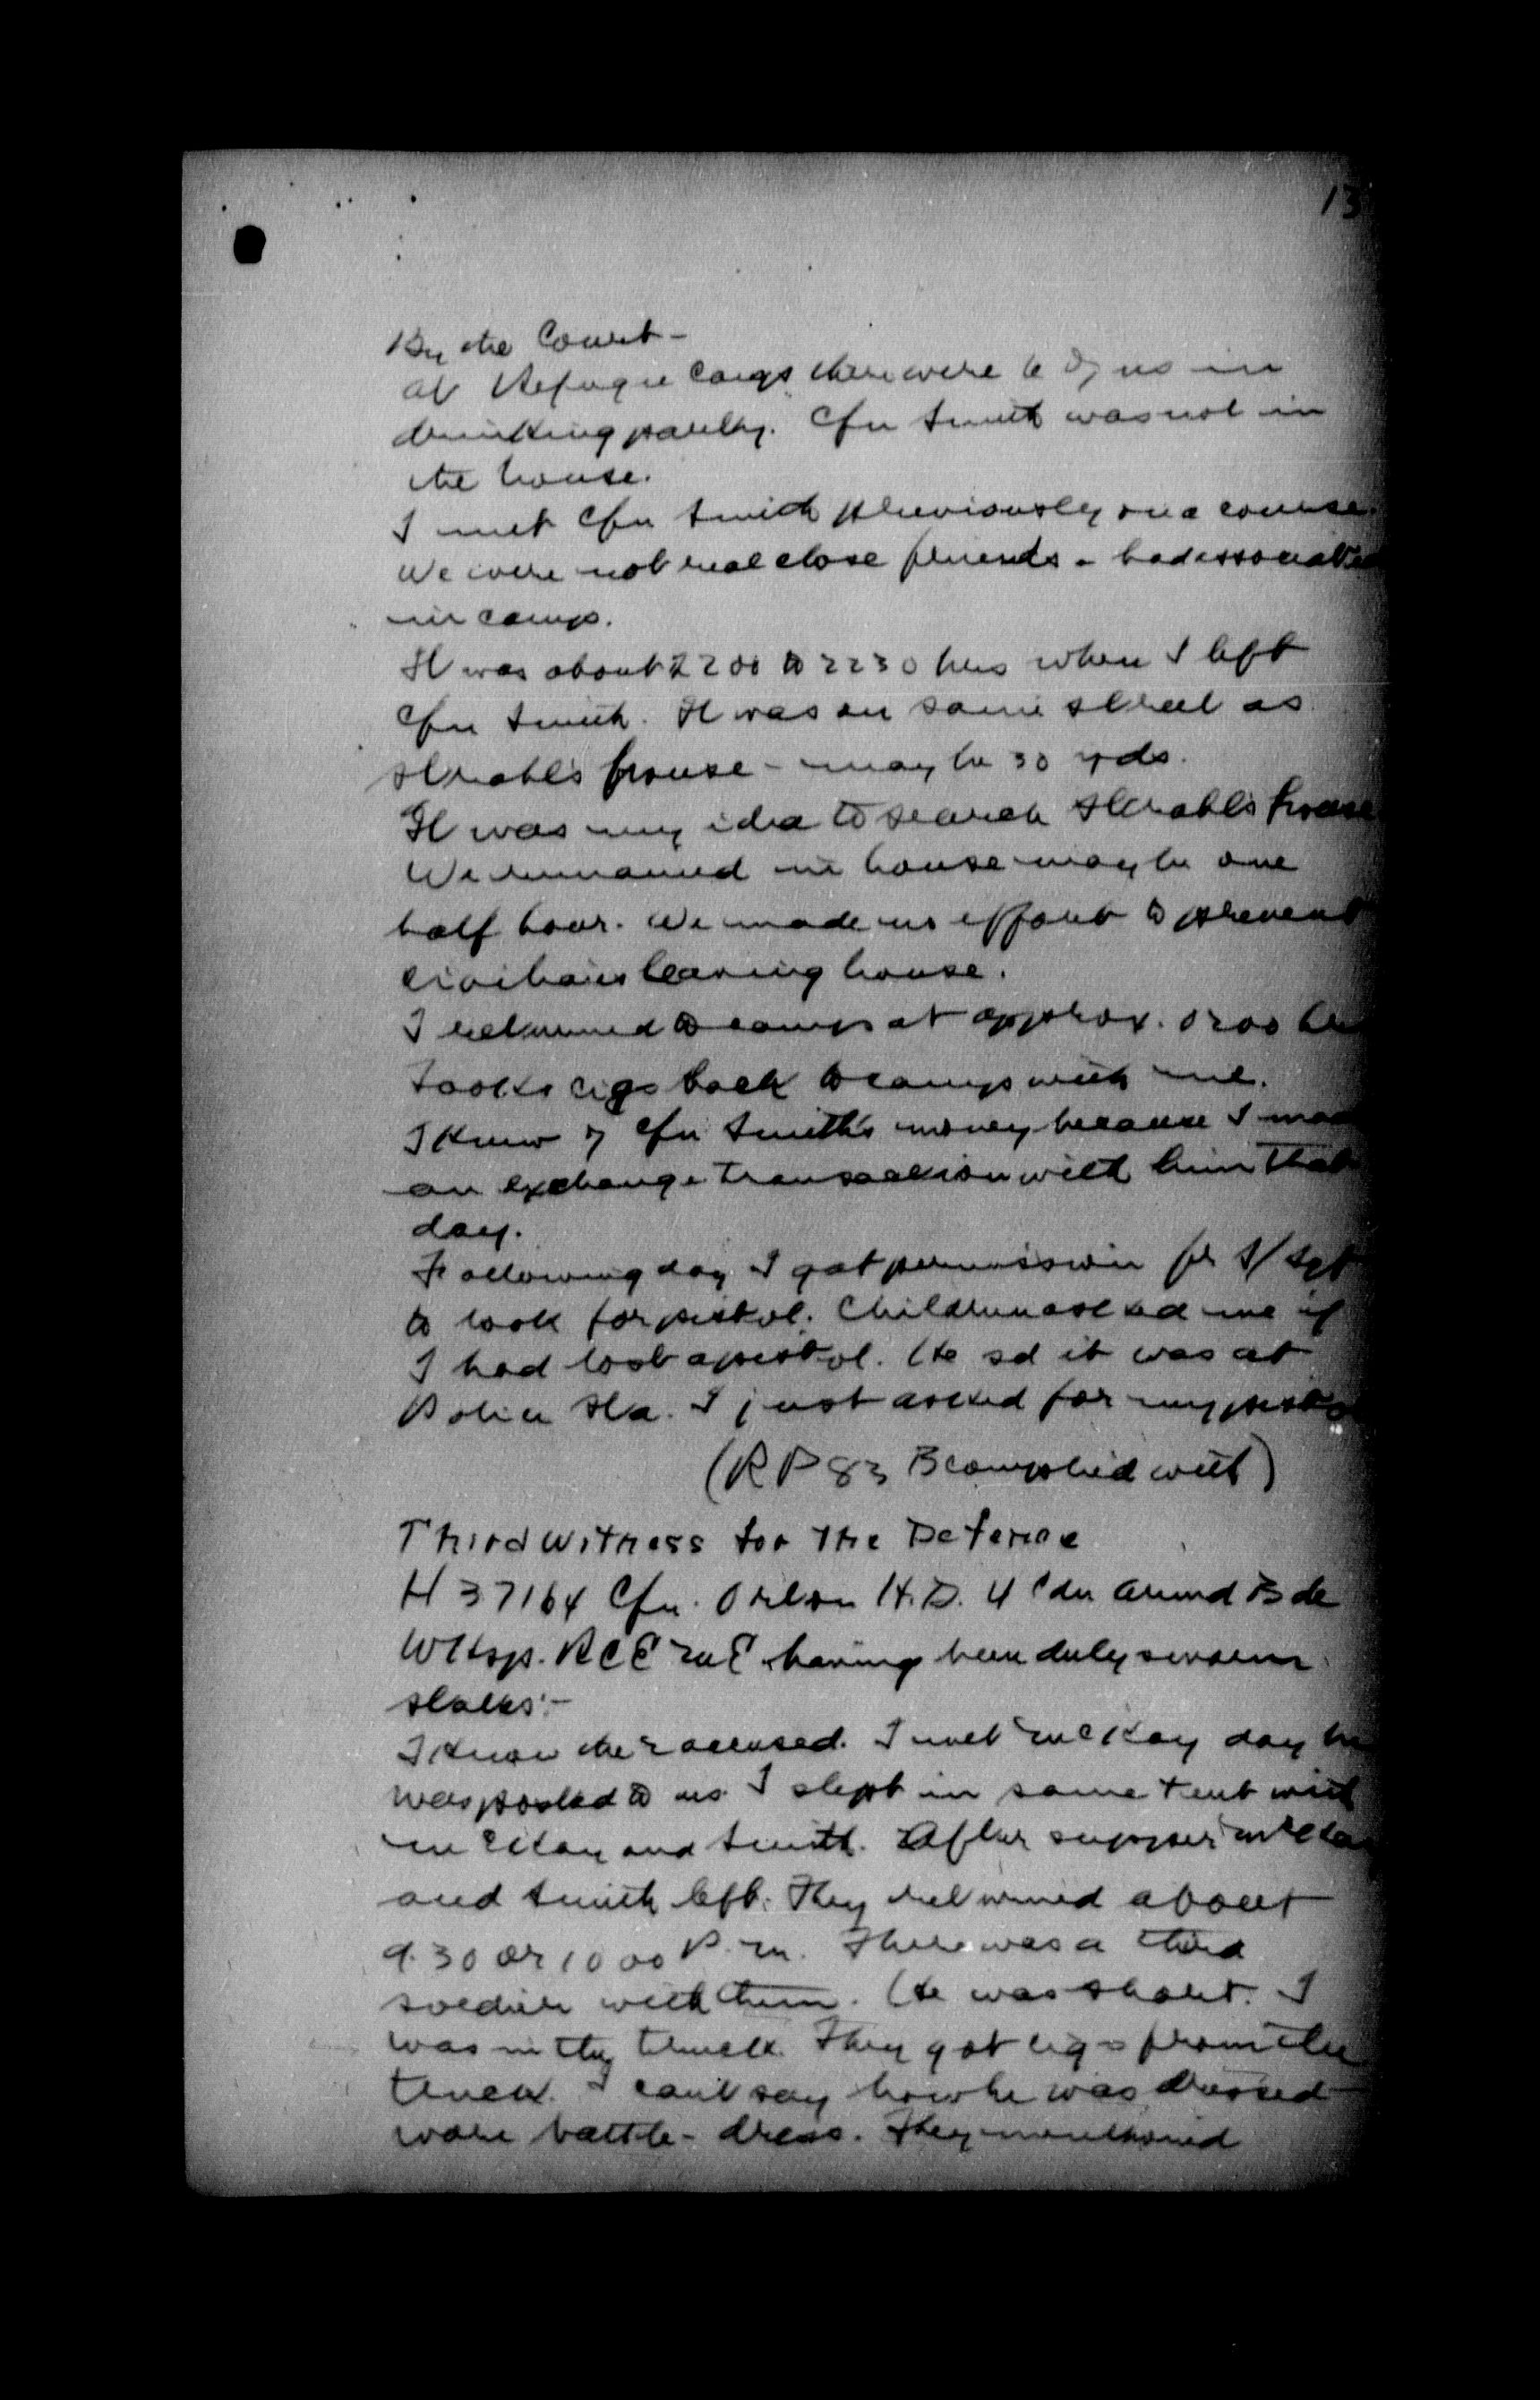 13
By the Court -
At Refugee Camp there were 6 of us in
drinking party. Cfn Smith was not in
the house.
I met Cfn Smith previously on a course.
We were not real close friends - had associated
in camp.
It was about 2200 to 2230 hrs when I left
Cfn Smith. It was on same street as
house - maybe 30 yds.
It was my idea to search house
We remained in house maybe one
half hour. We made no effort to prevent
civilians leaving house.
I returned to camp at approx. 0200 hrs
Took cigs back to camp with me.
I knew of Cfn Smith's money because I made
an exchange transaction with him that
day.
Following day I got permission fr S/Sgt
to look for pistol. Children asked me if
I had lost a pistol. He sd it was at
Police Sta. I just asked for my pistol
(RP 83 B complied with)
Third Witness for the Defence
H 37164 Cfn. H.D. 4 Cdn Armd Bde
Wksp. RCEME having been duly sworn
states:-
I know the accused. I met McKay day he
was posted to us. I slept in same tent with
McKay and Smith. After supper McKay
and Smith left. They returned about
9.30 or 1000 P.M. There was a third
soldier with them. He was short. I
was in the truck. They got cigs from the
truck. I can't say how he was dressed -
wore battle-dress. They mentioned